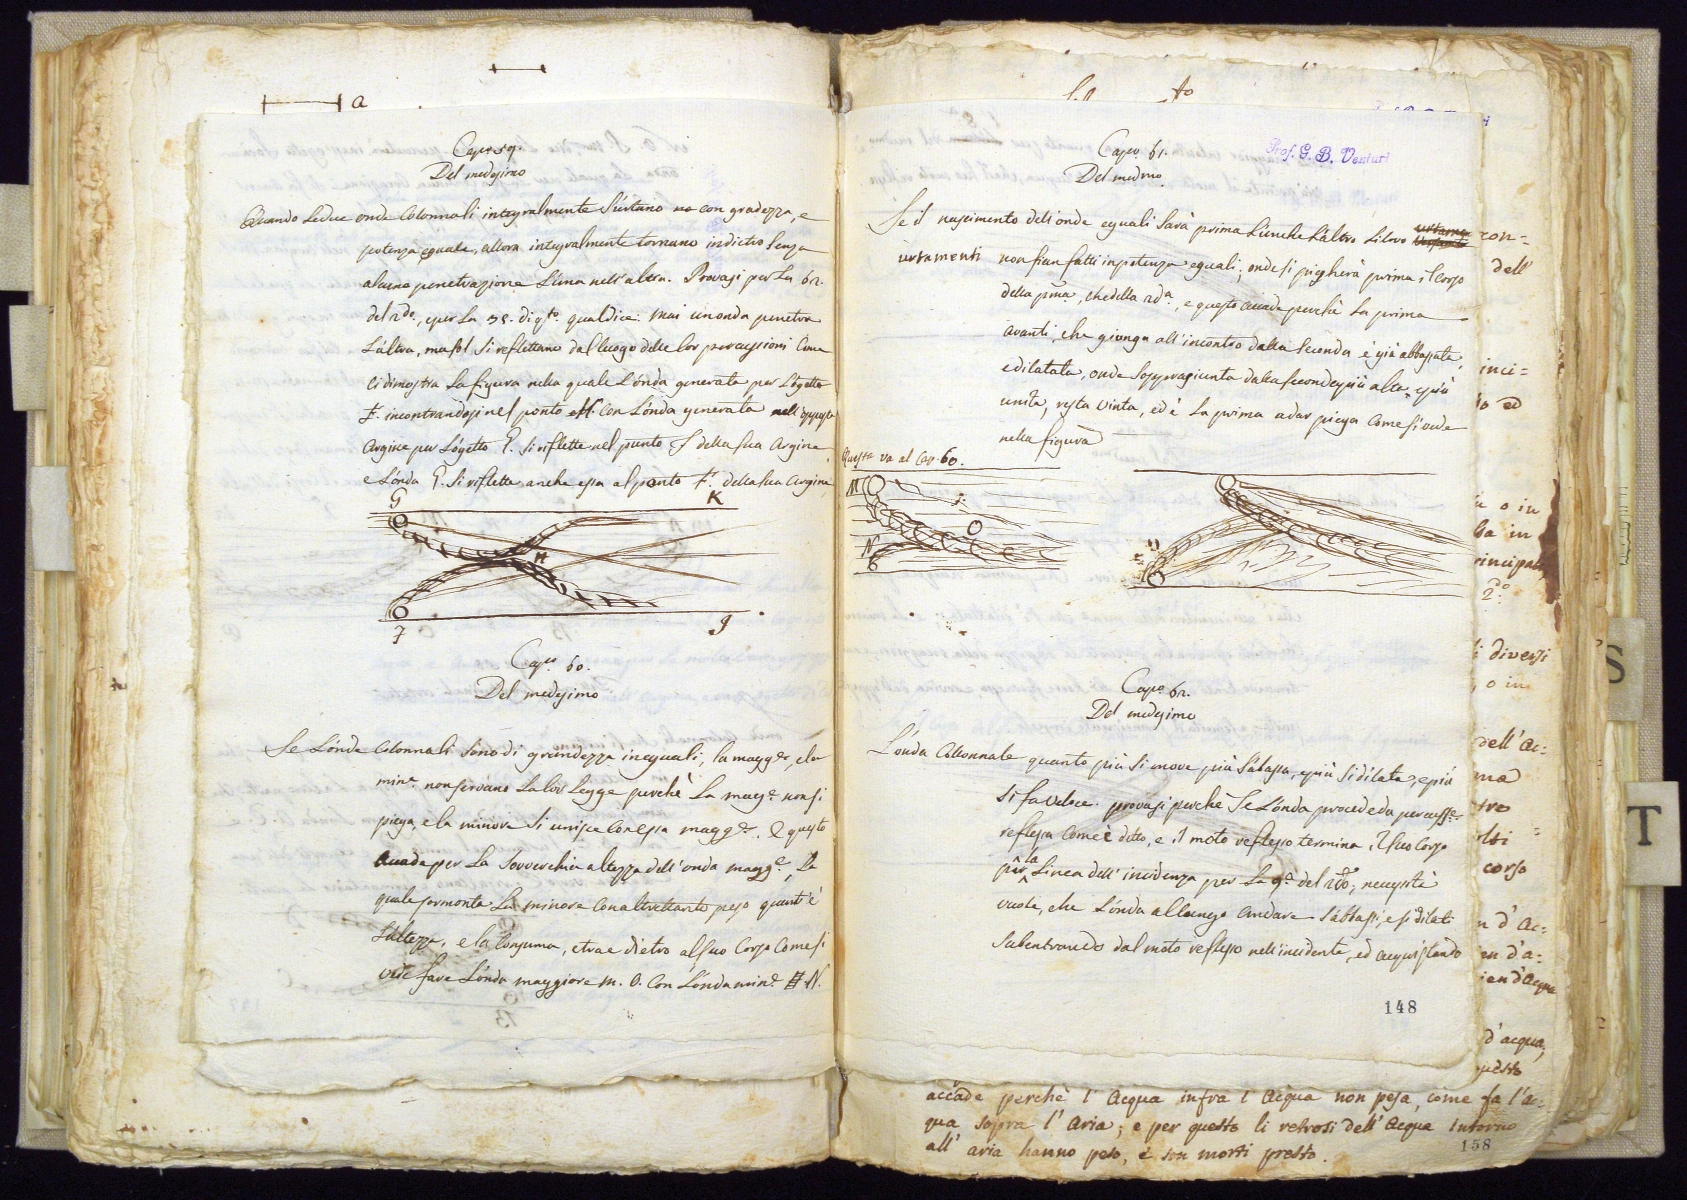 a
Capo. 59.
Del medesimo
Quando Le due onde Colonnali integralmente S'urtano no con gradezza, e
potenza eguale, allora integralmente tornano indietro Senza
alcuna penetrazione L'una nell'altra. Provasi per La 62.
del 2do., e per La 35. di qto. qual dice: mai un onda penetra
L'altra, ma sol Si reflettano dal luogo delle lor percussioni Come
ci dimostra La figura nella quale L'onda generata per L'ogetto
F. incontrandosi nel ponto H. Con L'onda generata nell'opposta
Argine per L'ogetto G. Si riflette nel punto J della sua Argine,
e L'onda G. Si riflette anche essa al ponto K. della sua Argine
G K
H
F J
Capo. 60.
Del medesimo
Se L'onde Colonnali Sono di grandezza ineguali, la magge., e la
mine. non servano La lor Legge perchè La magge. non si
piega, e la minore Si unisce Con essa magge. E questo
Accade per La Soverchia altezza dell'onda magge., La
quale sormonta La minore Con altrettanto peso quant'è
L'altezza, e la Consuma, e trae dietro al suo Corso Come si
vede fare L'onda maggiore M. O. Con L'onda mine. N.
Capo. 61.
Prof. G. B. Venturi
Del medmo.
Se il nascimento dell'onde eguali Sarà prima L'un che L'altro Li loro
urtamenti non fian fatti in potenza eguali; onde si pigherà prima il Corso
della pma., che della 2da., e questo accade perchè La prima
avanti, che giunga all'incontro della Seconda è già abbassata,
e dilatata, onde Sopragiunta dalla seconda più alta, e più
unita, resta vinta, ed è La prima a dar piega Come si vede
nella figura
Questa va al Cap. 60.
M
O
N
Capo. 62.
Del medesimo
L'onda Collonnale quanto più Si move più S'abassa, e più Si dilata, e più
Si fa veloce. provasi perchè Se L'onda procede da percusse.
reflessa Come è detto, e il moto reflesso termina il suo Corso
per la Linea dell'incidenza per La 9a. del 2do., necessità
vuole, che L'onda allungo andare S'abbassi, e si dilati
Subentrando dal moto reflesso nell'incidente, ed acquistando
148
accade perchè l'Acqua infra l'Acqua non pesa, come fa l'ac:
qua sopra l'Aria; e per questo li retrosi dell'Acqua intorno
all'aria hanno peso, e son morti presto.
158
con=
dell'
inci=
principal
2.o
diversi
o in
dell'Ac:
corso
d'Ac:
d'acqua,
questo
S
T